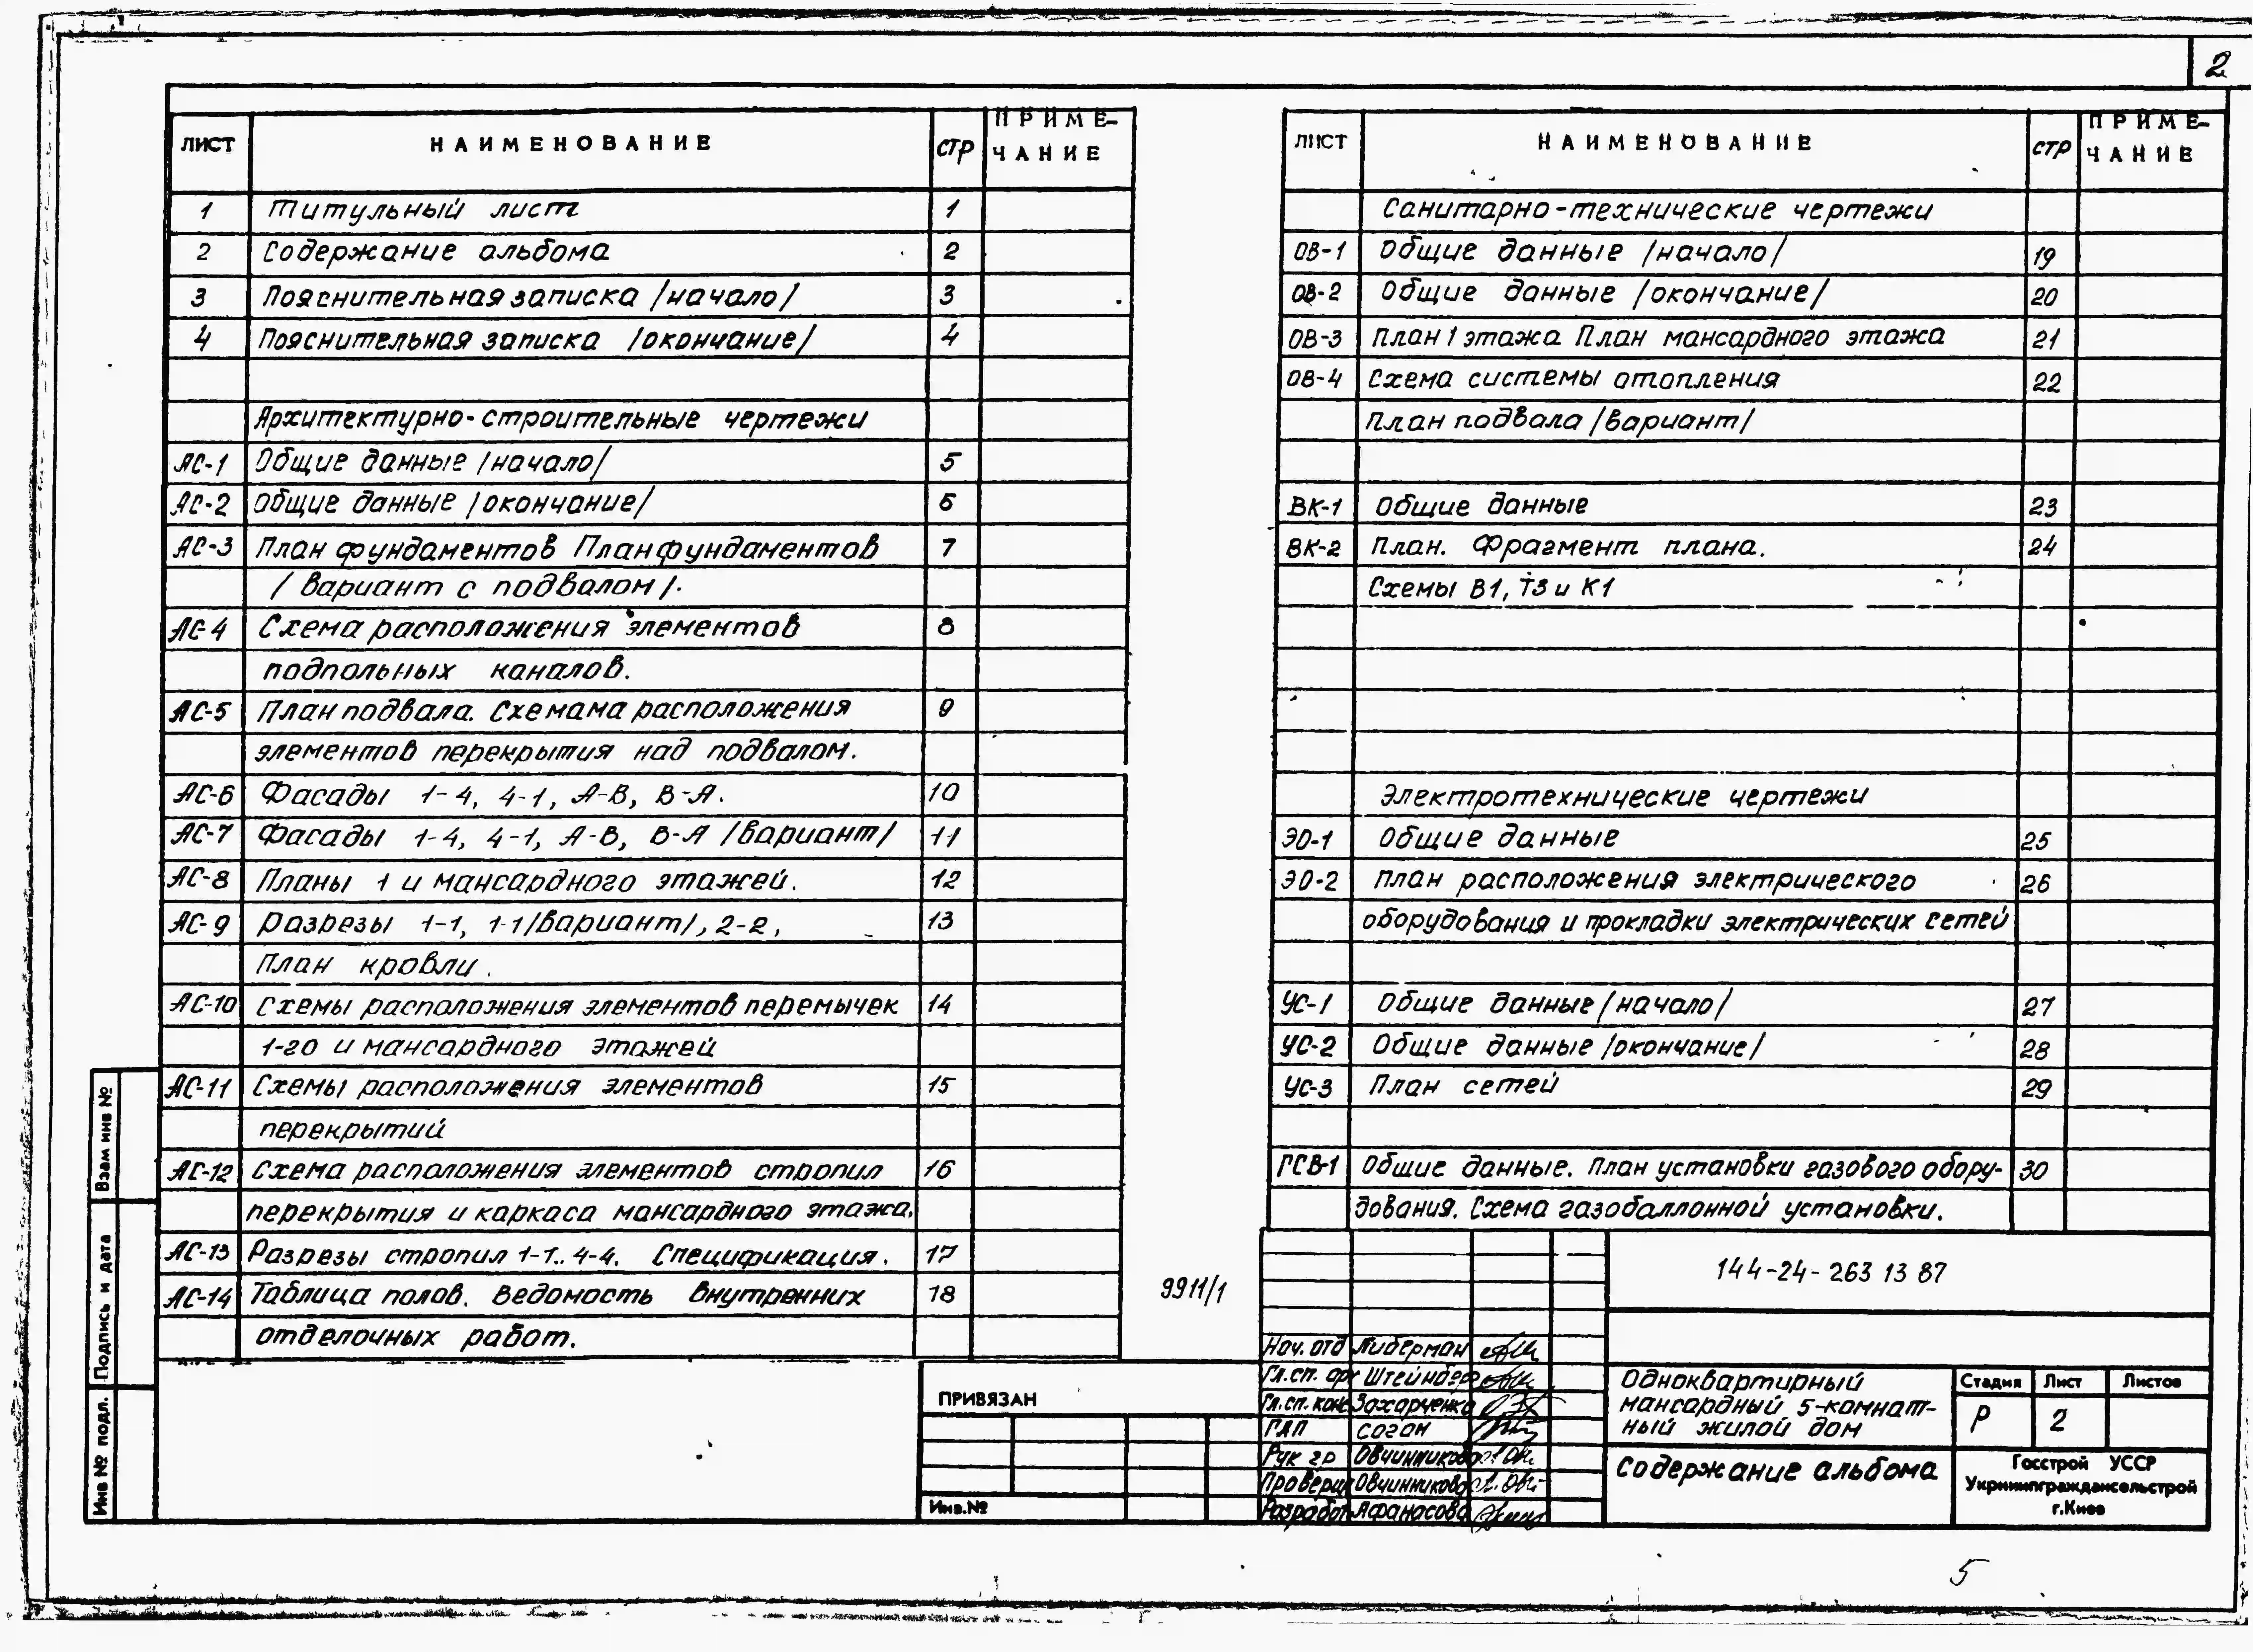 2
ЛИСТ НАИМЕНОВАНИЕ СТР ПРИМЕ-
ЧАНИЕ
1 Титульный лист 1
2 Содержание альбома 2
3 Пояснительная записка /начало/ 3
4 Пояснительная записка /окончание/ 4
Архитектурно-строительные чертежи
АС-1 Общие данные /начало/ 5
АС-2 Общие данные /окончание/ 6
АС-3 План фундаментов План фундаментов 7
/вариант с подвалом/.
АС-4 Схема расположения элементов 8
подпольных каналов.
АС-5 План подвала. Схемама расположения 9
элементов перекрытия над подвалом.
АС-6 Фасады 1-4, 4-1, А-В, В-А. 10
АС-7 Фасады 1-4, 4-1, А-В, В-А /вариант/ 11
АС-8 Планы 1 и мансардного этажей. 12
АС-9 Разрезы 1-1, 1-1/вариант/, 2-2, 13
План кровли.
АС-10 Схемы расположения элементов перемычек 14
1-го и мансардного этажей
АС-11 Схемы расположения элементов 15
перекрытий
АС-12 Схема расположения элементов стропил 16
перекрытия и каркаса мансардного этажа.
АС-13 Разрезы стропил 1-1.. 4-4. Спецификация. 17
АС-14 Таблица полов. Ведомость внутренних 18
отделочных работ.
ЛИСТ НАИМЕНОВАНИЕ СТР ПРИМЕ-
ЧАНИЕ
Санитарно-технические чертежи
ОВ-1 Общие данные /начало/ 19
ОВ-2 Общие данные /окончание/ 20
ОВ-3 План 1 этажа План мансардного этажа 21
ОВ-4 Схема системы отопления 22
План подвала /вариант/
ВК-1 Общие данные 23
ВК-2 План. Фрагмент плана. 24
Схемы В1, Т3 и К1
Электротехнические чертежи
ЭО-1 Общие данные 25
ЭО-2 План расположения электрического 26
оборудования и прокладки электрических сетей
УС-1 Общие данные /начало/ 27
УС-2 Общие данные /окончание/ 28
УС-3 План сетей 29
ГСВ-1 Общие данные. План установки газового обору- 30
дования. Схема газобаллонной установки.
9911/1
144-24-263 13 87
Нач. отд Либерман
Гл.сп. Штейнберг
Гл.сп. конс Захарченко
ГАП Соган
Рук гр Овчинникова
Проверил Овчинникова
Разработ Афанасова
Одноквартирный
мансардный 5-комнат-
ный жилой дом
Содержание альбома
Стадия Лист Листов
Р 2
Госстрой УССР
Укрниипграждансельстрой
г.Киев
ПРИВЯЗАН
Инв.№
Взам инв №
Подпись и дата
Инв № подл.
5